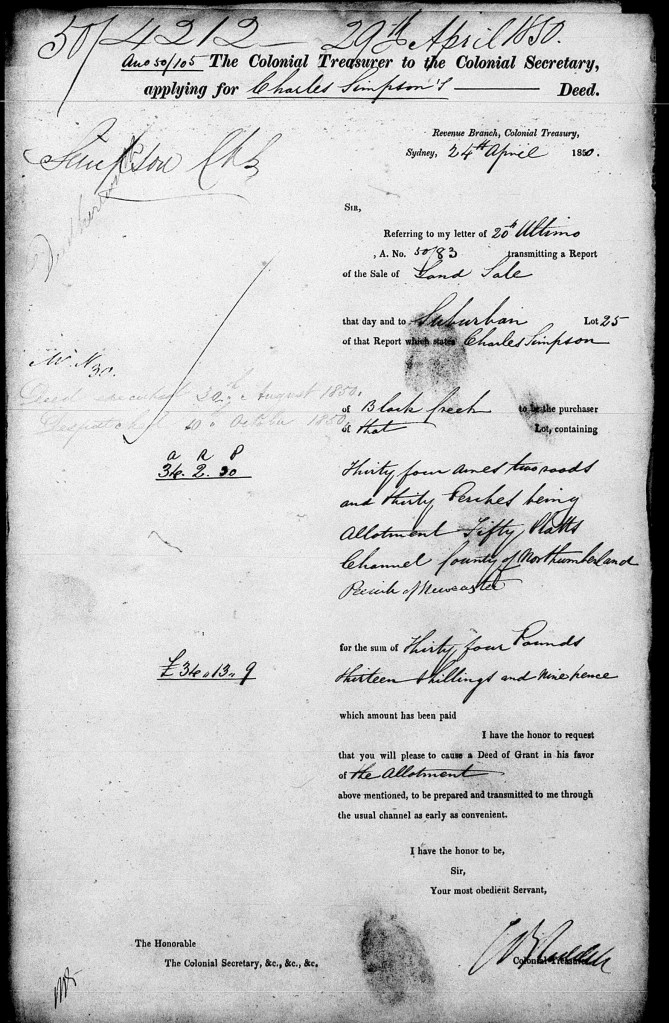 50/4212 — 29th April 1850.
And 50/105 The Colonial Treasurer to the Colonial Secretary,
applying for Charles Simpson's Deed.
Revenue Branch, Colonial Treasury,
Sydney, 24th April 1850.
Simpson Chs
SIR,
Referring to my letter of 20th Ultimo
, A. No. 50/83 transmitting a Report
of the Sale of Land Sale
that day and to Suburban Lot 25
of that Report which states Charles Simpson
Deed executed 30th August 1850.
Despatched 10th October 1850.
of Black Creek to be the purchaser
of that Lot, containing
a R P
34. 2. 30
Thirty four acres two roods
and thirty Perches being
Allotment Fifty Platts
Channel County of Northumberland
Parish of Newcastle
for the sum of Thirty four Pounds
£34. 13. 9
thirteen shillings and nine pence
which amount has been paid
I have the honor to request
that you will please to cause a Deed of Grant in his favor
of the Allotment
above mentioned, to be prepared and transmitted to me through
the usual channel as early as convenient.
I have the honor to be,
Sir,
Your most obedient Servant,
Colonial Treasurer
The Honorable
The Colonial Secretary, &c., &c., &c.